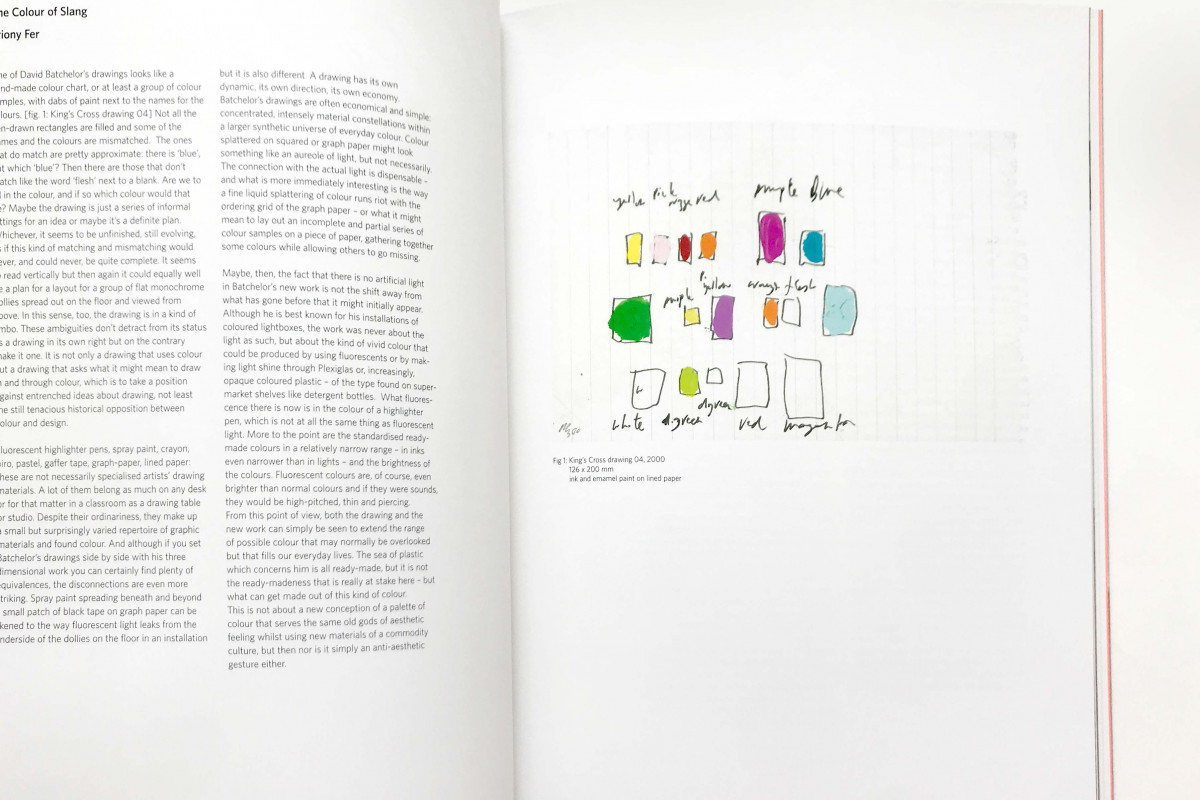 ne Colour of Slang
riony Fer
ne of David Batchelor's drawings looks like a
nd-made colour chart, or at least a group of colour
mples, with dabs of paint next to the names for the
lours. [fig. 1: King's Cross drawing 04] Not all the
n-drawn rectangles are filled and some of the
mes and the colours are mismatched. The ones
at do match are pretty approximate: there is 'blue',
t which 'blue'? Then there are those that don't
atch like the word 'flesh' next to a blank. Are we to
l in the colour, and if so which colour would that
e? Maybe the drawing is just a series of informal
ttings for an idea or maybe it's a definite plan.
Whichever, it seems to be unfinished, still evolving,
s if this kind of matching and mismatching would
ever, and could never, be quite complete. It seems
o read vertically but then again it could equally well
e a plan for a layout for a group of flat monochrome
ollies spread out on the floor and viewed from
bove. In this sense, too, the drawing is in a kind of
mbo. These ambiguities don't detract from its status
s a drawing in its own right but on the contrary
make it one. It is not only a drawing that uses colour
ut a drawing that asks what it might mean to draw
n and through colour, which is to take a position
gainst entrenched ideas about drawing, not least
he still tenacious historical opposition between
olour and design.
luorescent highlighter pens, spray paint, crayon,
iro, pastel, gaffer tape, graph-paper, lined paper:
hese are not necessarily specialised artists' drawing
materials. A lot of them belong as much on any desk
or for that matter in a classroom as a drawing table
or studio. Despite their ordinariness, they make up
a small but surprisingly varied repertoire of graphic
materials and found colour. And although if you set
Batchelor's drawings side by side with his three
dimensional work you can certainly find plenty of
equivalences, the disconnections are even more
triking. Spray paint spreading beneath and beyond
small patch of black tape on graph paper can be
kened to the way fluorescent light leaks from the
nderside of the dollies on the floor in an installation
but it is also different. A drawing has its own
dynamic, its own direction, its own economy.
Batchelor's drawings are often economical and simple:
concentrated, intensely material constellations within
a larger synthetic universe of everyday colour. Colour
splattered on squared or graph paper might look
something like an aureole of light, but not necessarily.
The connection with the actual light is dispensable –
and what is more immediately interesting is the way
a fine liquid splattering of colour runs riot with the
ordering grid of the graph paper – or what it might
mean to lay out an incomplete and partial series of
colour samples on a piece of paper, gathering together
some colours while allowing others to go missing.
Maybe, then, the fact that there is no artificial light
in Batchelor's new work is not the shift away from
what has gone before that it might initially appear.
Although he is best known for his installations of
coloured lightboxes, the work was never about the
light as such, but about the kind of vivid colour that
could be produced by using fluorescents or by mak-
ing light shine through Plexiglas or, increasingly,
opaque coloured plastic – of the type found on super-
market shelves like detergent bottles. What fluores-
cence there is now is in the colour of a highlighter
pen, which is not at all the same thing as fluorescent
light. More to the point are the standardised ready-
made colours in a relatively narrow range – in inks
even narrower than in lights – and the brightness of
the colours. Fluorescent colours are, of course, even
brighter than normal colours and if they were sounds,
they would be high-pitched, thin and piercing.
From this point of view, both the drawing and the
new work can simply be seen to extend the range
of possible colour that may normally be overlooked
but that fills our everyday lives. The sea of plastic
which concerns him is all ready-made, but it is not
the ready-madeness that is really at stake here – but
what can get made out of this kind of colour.
This is not about a new conception of a palette of
colour that serves the same old gods of aesthetic
feeling whilst using new materials of a commodity
culture, but then nor is it simply an anti-aesthetic
gesture either.
yellow pink red purple blue
purple yellow orange flesh
white d.green d.green red magenta
Fig 1: King's Cross drawing 04, 2000
126 x 200 mm
ink and enamel paint on lined paper